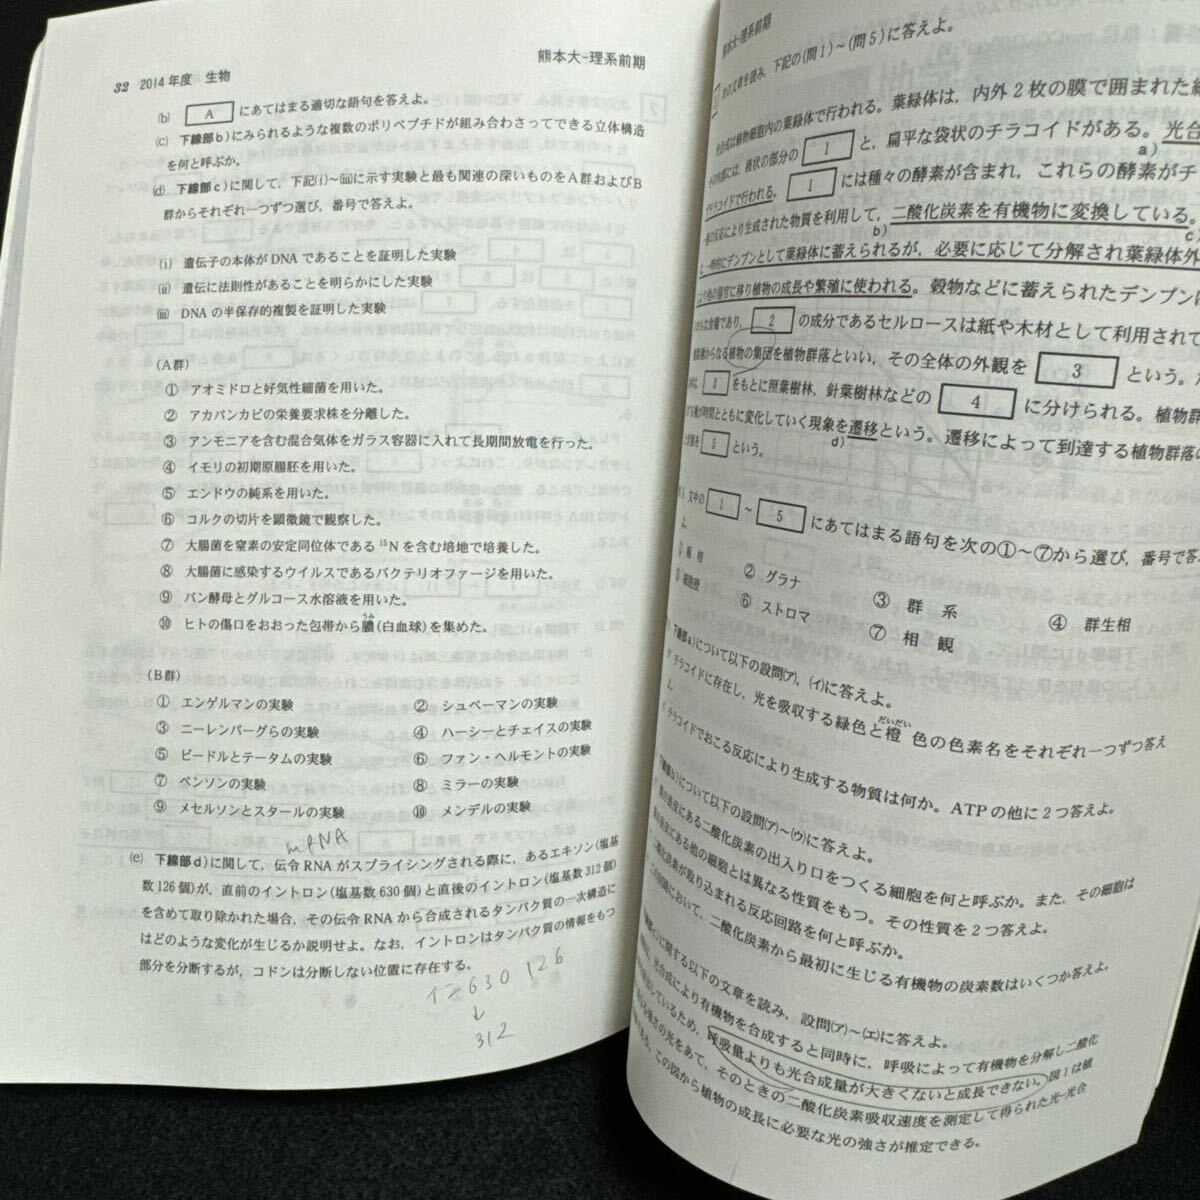 32 2014年度 生物
熊本大-理系前期
(b) A にあてはまる適切な語句を答えよ。
(c) 下線部b)にみられるような複数のポリペプチドが組み合わさってできる立体構造
を何と呼ぶか。
(d) 下線部c)に関して,下記(i)~(iii)に示す実験と最も関連の深いものをA群およびB
群からそれぞれ一つずつ選び,番号で答えよ。
(i) 遺伝子の本体がDNAであることを証明した実験
(ii) 遺伝に法則性があることを明らかにした実験
(iii) DNAの半保存的複製を証明した実験
(A群)
① アオミドロと好気性細菌を用いた。
② アカパンカビの栄養要求株を分離した。
③ アンモニアを含む混合気体をガラス容器に入れて長期間放電を行った。
④ イモリの初期原腸胚を用いた。
⑤ エンドウの純系を用いた。
⑥ コルクの切片を顕微鏡で観察した。
⑦ 大腸菌を窒素の安定同位体である¹⁵Nを含む培地で培養した。
⑧ 大腸菌に感染するウイルスであるバクテリオファージを用いた。
⑨ パン酵母とグルコース水溶液を用いた。
⑩ ヒトの傷口をおおった包帯から膿(白血球)を集めた。
(B群)
① エンゲルマンの実験 ② シュペーマンの実験
③ ニーレンバーグらの実験 ④ ハーシーとチェイスの実験
⑤ ビードルとテータムの実験 ⑥ ファン・ヘルモントの実験
⑦ ベンソンの実験 ⑧ ミラーの実験
⑨ メセルソンとスタールの実験 ⑩ メンデルの実験
mRNA
(e) 下線部d)に関して,伝令RNAがスプライシングされる際に,あるエキソン(塩基
数126個)が,直前のイントロン(塩基数630個)と直後のイントロン(塩基数312個)
を含めて取り除かれた場合,その伝令RNAから合成されるタンパク質の一次構造に
はどのような変化が生じるか説明せよ。なお,イントロンはタンパク質の情報をもつ
部分を分断するが,コドンは分断しない位置に存在する。
630 126
↓
312
熊本大-理系前期
次の文章を読み,下記の(問1)~(問5)に答えよ。
光合成は植物細胞内の葉緑体で行われる。葉緑体は,内外2枚の膜で囲まれた
その内部には,液状の部分の 1 と,扁平な袋状のチラコイドがある。光合
a)
チラコイドで行われる。 1 には種々の酵素が含まれ,これらの酵素がチ
の反応により生成された物質を利用して,二酸化炭素を有機物に変換している。
b) c)
一時的にデンプンとして葉緑体に蓄えられるが,必要に応じて分解され葉緑体外
他の器官に移り植物の成長や繁殖に使われる。穀物などに蓄えられたデンプンは
な食糧であり, 2 の成分であるセルロースは紙や木材として利用されて
からなる植物の集団を植物群落といい,その全体の外観を 3 という。
3 をもとに照葉樹林,針葉樹林などの 4 に分けられる。植物群
が時間とともに変化していく現象を遷移という。遷移によって到達する植物群落の
d)
を 5 という。
文中の 1 ~ 5 にあてはまる語句を次の①~⑦から選び,番号で答
① 極相 ② グラナ ③ 群系 ④ 群生相
⑤ 細胞壁 ⑥ ストロマ ⑦ 相観
下線部a)について以下の設問(ア),(イ)に答えよ。
チラコイドに存在し,光を吸収する緑色と橙色の色素名をそれぞれ一つずつ答え
チラコイドでおこる反応により生成する物質は何か。ATPの他に2つ答えよ。
下線部b)について以下の設問(ア)~(ウ)に答えよ。
葉の表皮にある二酸化炭素の出入り口をつくる細胞を何と呼ぶか。また,その細胞は
表皮にある他の細胞とは異なる性質をもつ。その性質を2つ答えよ。
二酸化炭素が取り込まれる反応回路を何と呼ぶか。
この回路において,二酸化炭素から最初に生じる有機物の炭素数はいくつか答えよ。
に関する以下の文章を読み,設問(ア)~(エ)に答えよ。
光合成により有機物を合成すると同時に,呼吸によって有機物を分解し二酸化
しているため,呼吸量よりも光合成量が大きくないと成長できない。図1は植
強さの光をあて,そのときの二酸化炭素吸収速度を測定して得られた光-光合
である。この図から植物の成長に必要な光の強さが推定できる。